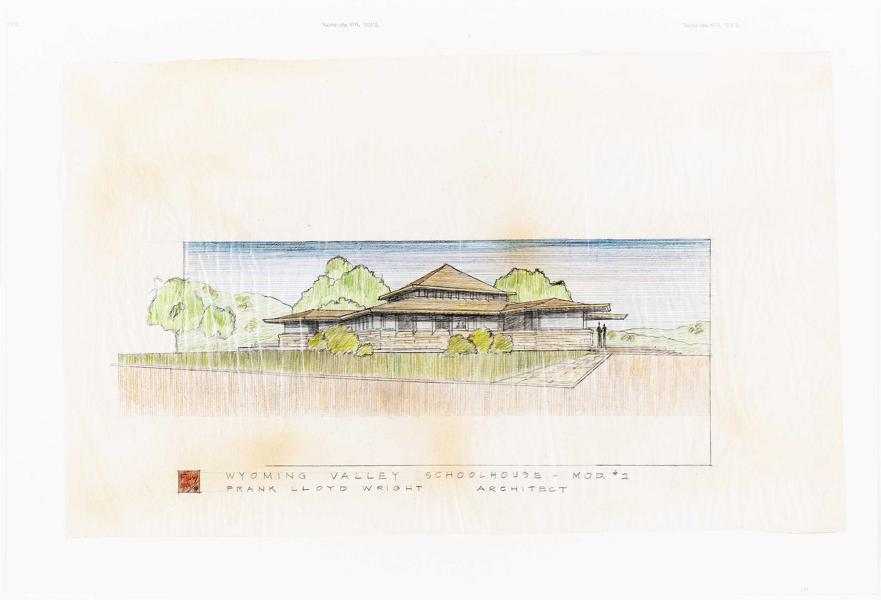 WYOMING VALLEY SCHOOLHOUSE - MOD. #2
FRANK LLOYD WRIGHT ARCHITECT